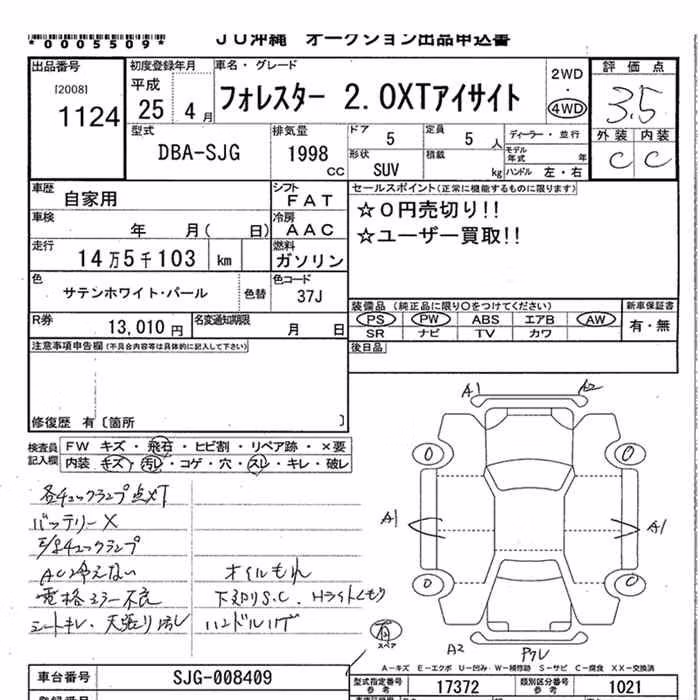 *0005509*
JU沖縄 オークション出品申込書
出品番号
[2008]
1124
初度登録年月
平成
25 4月
車名・グレード
フォレスター 2.0XTアイサイト
2WD
・
4WD
評価点
3.5
外装 内装
C C
型式
DBA-SJG
排気量
1998
CC
ドア
5
定員
5 人
形状
SUV
積載
kg
ディーラー・並行
モデル年式 年
ハンドル 左・右
車歴
自家用
シフト
FAT
車検
年 月( 日)
冷房
AAC
走行
14万5千103 km
燃料
ガソリン
色
サテンホワイト・パール
色替
色コード
37J
R券
13,010円
名変通知期限
月 日
セールスポイント(正常に機能するものに限ります)
☆0円売切り!!
☆ユーザー買取!!
装備品 (純正品に限り○をつけてください)
PS PW ABS エアB AW
SR ナビ TV カワ
新車保証書
有・無
後日品
注意事項申告欄(不具合内容等は具体的に記入して下さい)
修復歴 有〔箇所 〕
検査員記入欄
FW キズ・飛石・ヒビ割・リペア跡・×要
内装 キズ・汚レ・コゲ・穴・スレ・キレ・破レ
各チェックランプ点灯
バッテリーX
チェックランプ
AC冷えない オイルもれ
電格ミラー不良 下廻りS.C. Hライトくもり
シートキレ・天張り汚レ ハンドルハゲ
A1 A2
0 0
A1 A1
0 0
スペア
A2
A キズ E エクボ U 凹み W 補修跡 S サビ C 腐食 XX 交換済
車台番号
SJG-008409
型式指定番号
参考
17372
類別区分番号
参考
1021